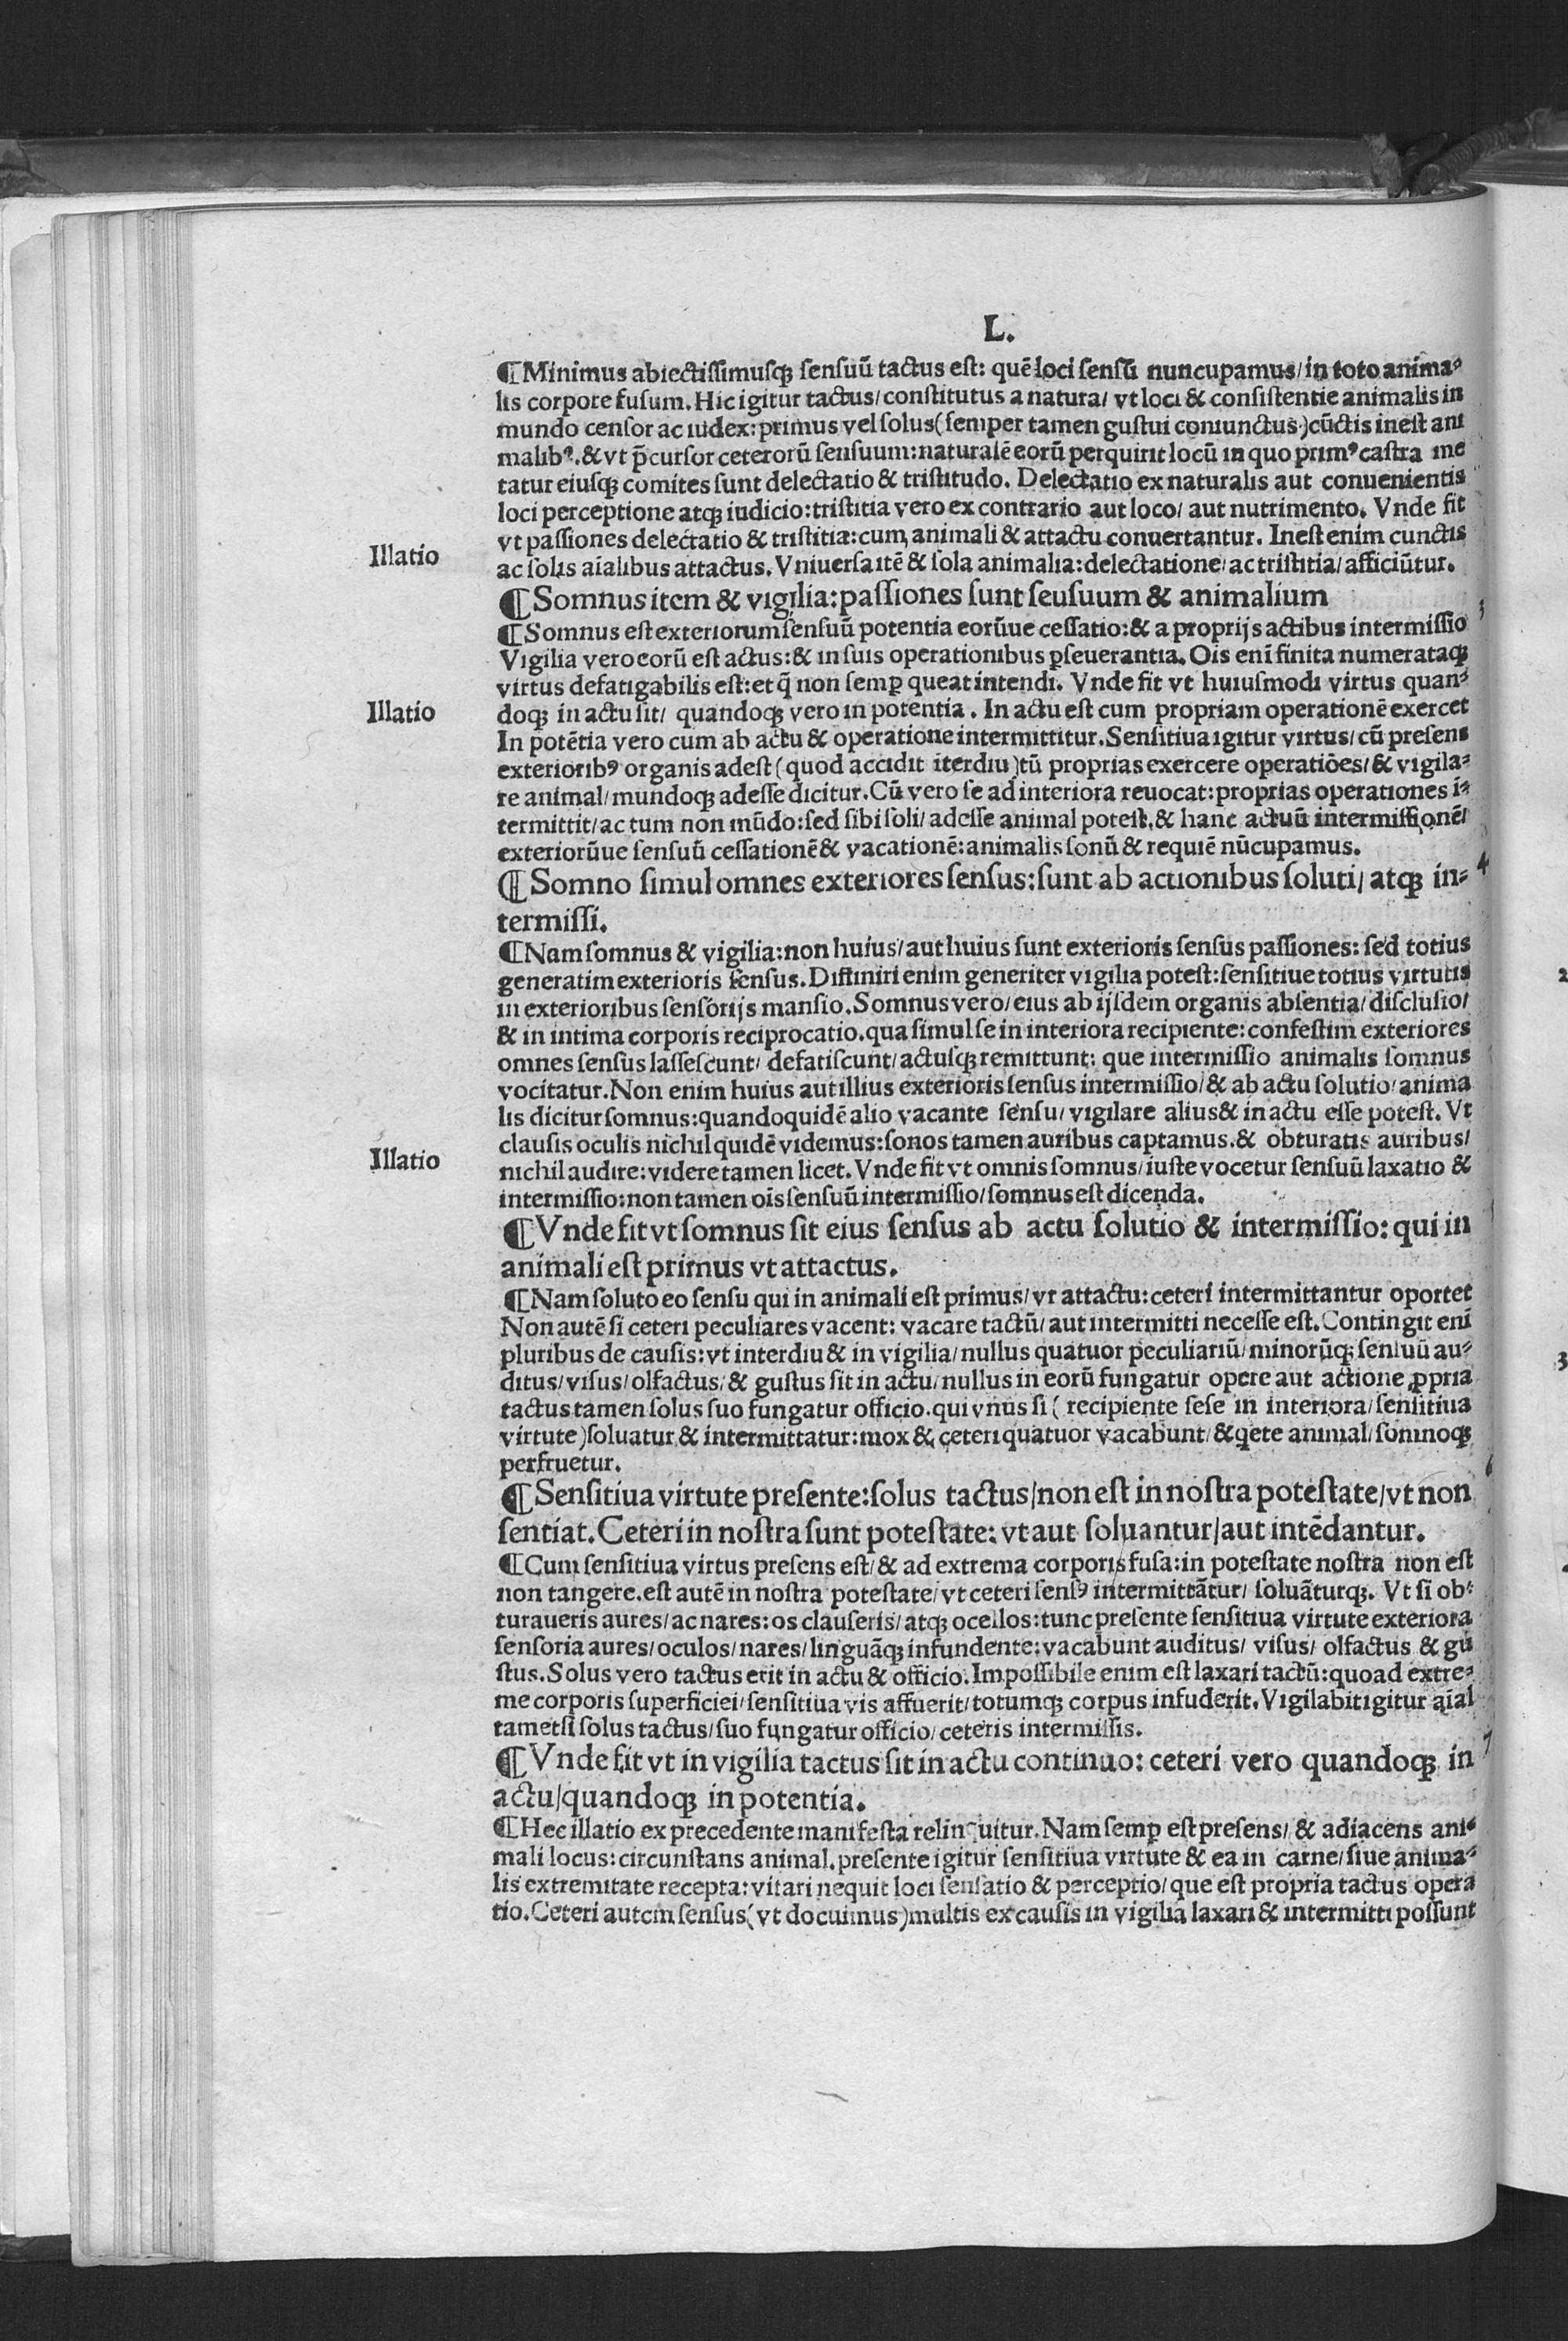 L.
¶Minimus abiectissimusqꝫ sensuū tactus est: quē loci sensū nuncupamus/in toto anima⸗
lis corpore fusum. Hic igitur tactus/constitutus a natura/ vt loci & consistentie animalis in
mundo censor ac iudex: primus vel solus(semper tamen gustui coniunctus)cūctis inest ani
malibꝰ. & vt p̄cursor ceterorū sensuum: naturalē eorū perquirit locū in quo primꝰ castra me
tatur eiusqꝫ comites sunt delectatio & tristitudo. Delectatio ex naturalis aut conuenientis
loci perceptione atqꝫ iudicio: tristitia vero ex contrario aut loco/ aut nutrimento. Vnde fit
vt passiones delectatio & tristitia: cum animali & attactu conuertantur. Inest enim cunctis
Illatio
ac solis aīalibus attactus. Vniuersa itē & sola animalia: delectatione/ac tristitia/afficiūtur.
¶Somnus item & vigilia: passiones sunt seusuum & animalium
3
¶Somnus est exteriorum sensuū potentia eorūue cessatio: & a proprijs actibus intermissio
Vigilia vero eorū est actus: & in suis operationibus ꝑseuerantia. Oīs enī finita numerataqꝫ
virtus defatigabilis est: et q̄ non semꝑ queat intendi. Vnde fit vt huiusmodi virtus quan⸗
Illatio
doqꝫ in actu sit/ quandoqꝫ vero in potentia. In actu est cum propriam operationē exercet
In potētia vero cum ab actu & operatione intermittitur. Sensitiua igitur virtus/cū presens
exterioribꝰ organis adest(quod accidit īterdiu)tū proprias exercere operatiōes/& vigila⸗
re animal/mundoqꝫ adesse dicitur. Cū vero se ad interiora reuocat: proprias operationes ī⸗
termittit/ac tum non mūdo: sed sibi soli/adesse animal potest. & hanc actuū intermissionē/
exteriorūue sensuū cessationē & vacationē: animalis sonū & requiē nūcupamus.
¶Somno simul omnes exteriores sensus: sunt ab actionibus soluti/ atqꝫ in⸗
4
termissi.
¶Nam somnus & vigilia: non huius/aut huius sunt exterioris sensus passiones: sed totius
generatim exterioris sensus. Diffiniri enim generiter vigilia potest: sensitiue totius virtutis
in exterioribus sensorijs mansio. Somnus vero/eius ab ijsdem organis absentia/disclusio/
& in intima corporis reciprocatio. qua simul se in interiora recipiente: confestim exteriores
omnes sensus lassescunt/ defatiscunt/actusqꝫ remittunt: que intermissio animalis somnus
vocitatur. Non enim huius aut illius exterioris sensus intermissio/& ab actu solutio/anima
lis dicitur somnus: quandoquidē alio vacante sensu/vigilare alius & in actu esse potest. Vt
clausis oculis nichil quidē videmus: sonos tamen auribus captamus. & obturatis auribus/
Illatio
nichil audire: videre tamen licet. Vnde fit vt omnis somnus/iuste vocetur sensuū laxatio &
intermissio: non tamen oīs sensuū intermissio/somnus est dicenda.
¶Vnde fit vt somnus sit eius sensus ab actu solutio & intermissio: qui in
animali est primus vt attactus.
¶Nam soluto eo sensu qui in animali est primus/vt attactu: ceteri intermittantur oportet
Non autē si ceteri peculiares vacent: vacare tactū/aut intermitti necesse est. Contingit enī
pluribus de causis: vt interdiu & in vigilia/nullus quatuor peculiariū/minorūqꝫ sensuū au⸗
ditus/visus/olfactus/& gustus sit in actu/nullus in eorū fungatur opere aut actione ꝓpria
tactus tamen solus suo fungatur officio. qui vnus si( recipiente sese in interiora/sensitiua
virtute)soluatur & intermittatur: mox & ceteri quatuor vacabunt/&qete animal/somnoqꝫ
perfruetur.
6
¶Sensitiua virtute presente: solus tactus/non est in nostra potestate/vt non
sentiat. Ceteri in nostra sunt potestate: vt aut soluantur/aut intēdantur.
¶Cum sensitiua virtus presens est/& ad extrema corporis fusa: in potestate nostra non est
non tangere. est autē in nostra potestate/vt ceteri sensꝰ intermittātur/ soluāturqꝫ. Vt si ob⸗
turaueris aures/ac nares: os clauseris/atqꝫ ocellos: tunc presente sensitiua virtute exteriora
sensoria aures/oculos/nares/linguāqꝫ infundente: vacabunt auditus/ visus/ olfactus & gu
stus. Solus vero tactus erit in actu & officio. Impossibile enim est laxari tactū: quoad extre⸗
me corporis superficiei/sensitiua vis affuerit/totumqꝫ corpus infuderit. Vigilabit igitur aīal
tametsi solus tactus/suo fungatur officio/ceteris intermissis.
¶Vnde fit vt in vigilia tactus sit in actu continuo: ceteri vero quandoqꝫ in
7
actu/quandoqꝫ in potentia.
¶Hec illatio ex precedente manifesta relinquitur. Nam semꝑ est presens/& adiacens ani⸗
mali locus: circunstans animal. presente igitur sensitiua virtute & ea in carne/siue anima⸗
lis extremitate recepta: vitari nequit loci sensatio & perceptio/que est propria tactus opera
tio. Ceteri autem sensus(vt docuimus)multis ex causis in vigilia laxari & intermitti possunt
2
3